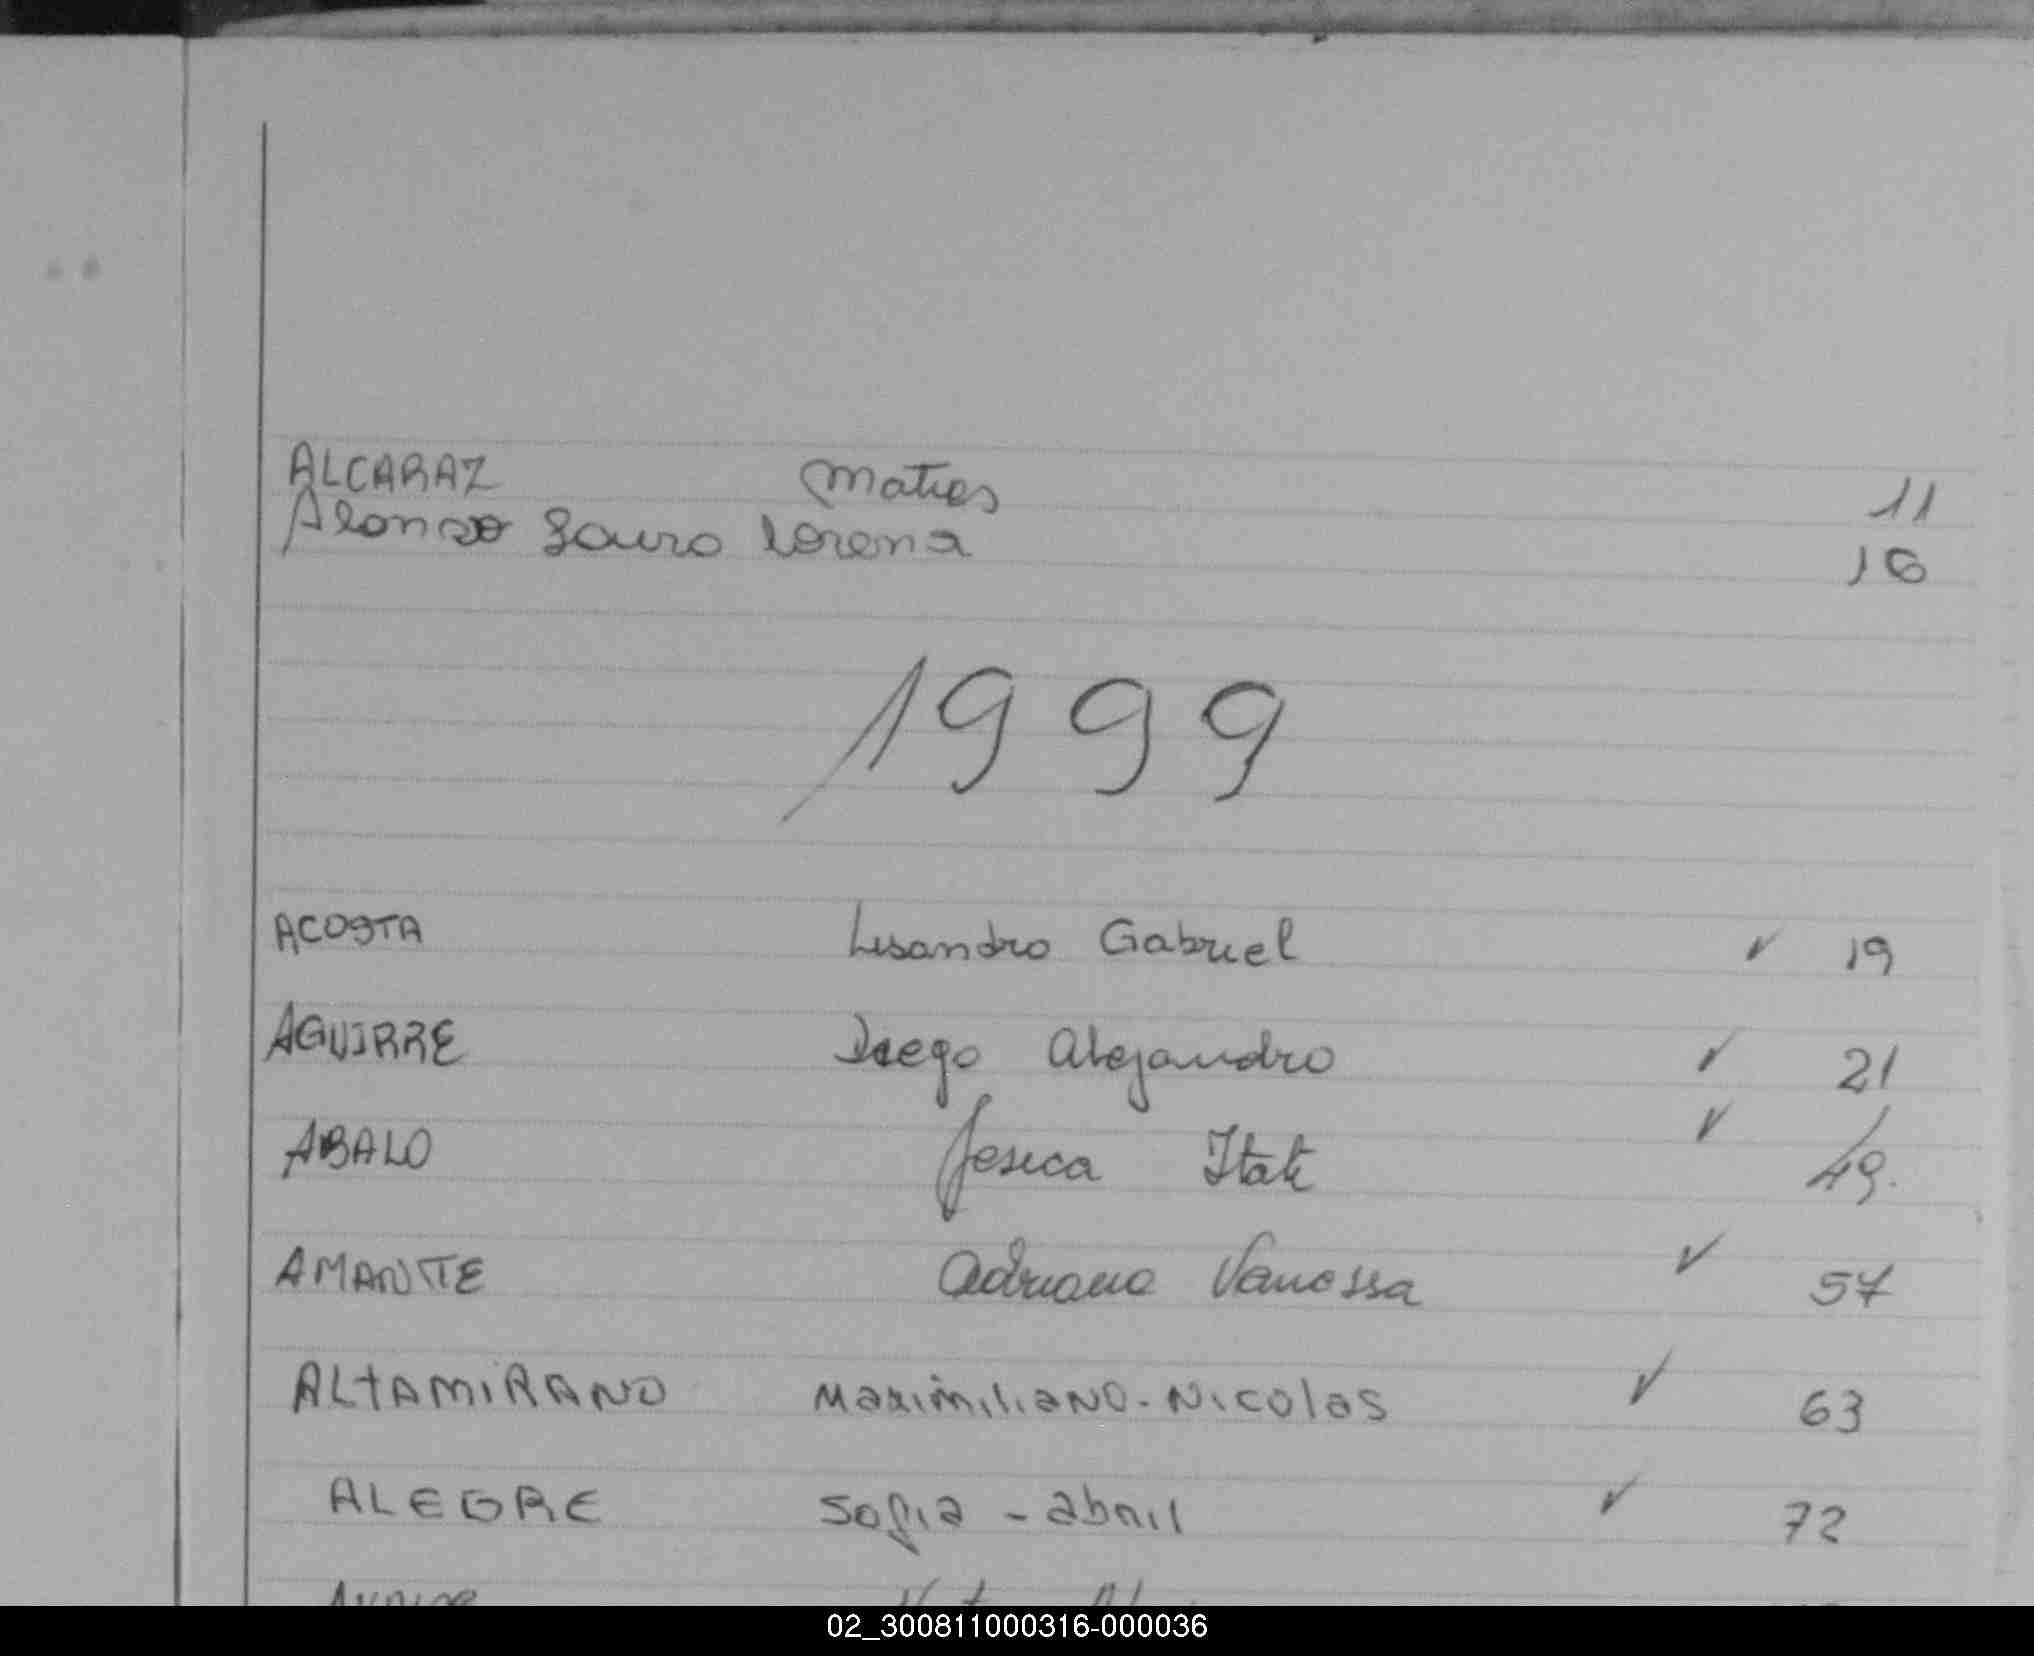 ALCARAZ Matias 11
Alonso Laura Lorena 16
1999
ACOSTA Lisandro Gabriel ✓ 19
AGUIRRE Diego Alejandro ✓ 21
ABALO Jesica Itati ✓ 49.
AMANTTE Adriana Vanessa ✓ 57
ALTAMIRANO Maximiliano-Nicolas ✓ 63
ALEGRE Sofia - abril ✓ 72
02_300811000316-000036